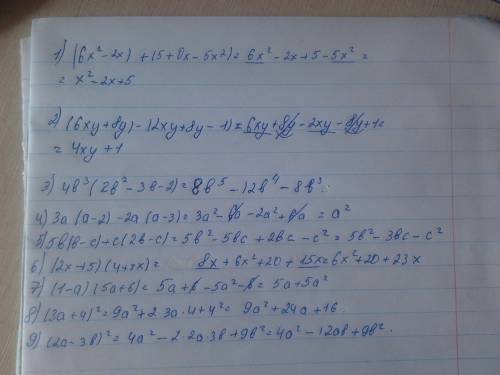 1) (6x² - 2x) + (5 + 0x - 5x²) = 6x² - 2x + 5 - 5x² =
= x² - 2x + 5.
2) (6xy + 8y) - (2xy + 8y - 1) = 6xy + 8y - 2xy - 8y + 1 =
= 4xy + 1
3) 4b³(2b² - 3b - 2) = 8b⁵ - 12b⁴ - 8b³.
4) 3a (a - 2) - 2a (a - 3) = 3a² - 6a - 2a² + 6a = a²
5) 5b(b - c) + c(2b - c) = 5b² - 5bc + 2bc - c² = 5b² - 3bc - c²
6) (2x + 5) (4 + 3x) = 8x + 6x² + 20 + 15x = 6x² + 20 + 23x
7) (1 - a) (5a + 6) = 5a + 6 - 5a² - 6 = 5a + 5a²
8) (3a + 4)² = 9a² + 2·3a·4 + 4² = 9a² + 24a + 16.
9) (2a - 3b)² = 4a² - 2·2a·3b + 9b² = 4a² - 12ab + 9b².